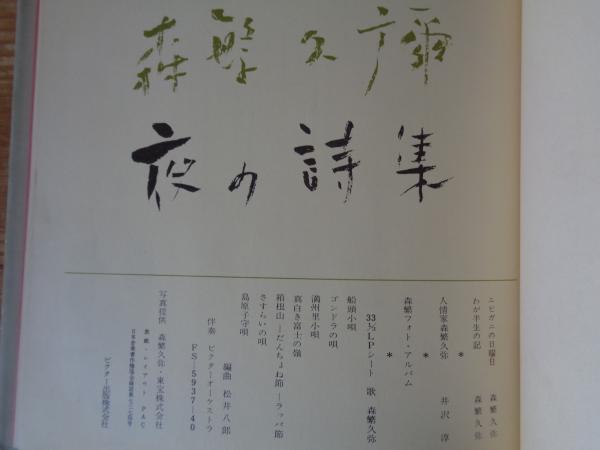 森繁久彌
夜の詩集
エビガニの日曜日 森繁久弥
わが半生の記 森繁久弥
*
人情家森繁久弥 井沢淳
*
森繁フォト・アルバム
*
33⅓LPシート 歌 森繁久弥
船頭小唄
ゴンドラの唄
満州里小唄
真白き富士の嶺
箱根山―だんちょね節―ラッパ節
さすらいの唄
島原子守唄
編曲 松井八郎
伴奏 ビクターオーケストラ
FS―5937―40
写真提供 森繁久弥・東宝株式会社
表紙・レイアウト PAC
ビクター出版株式会社